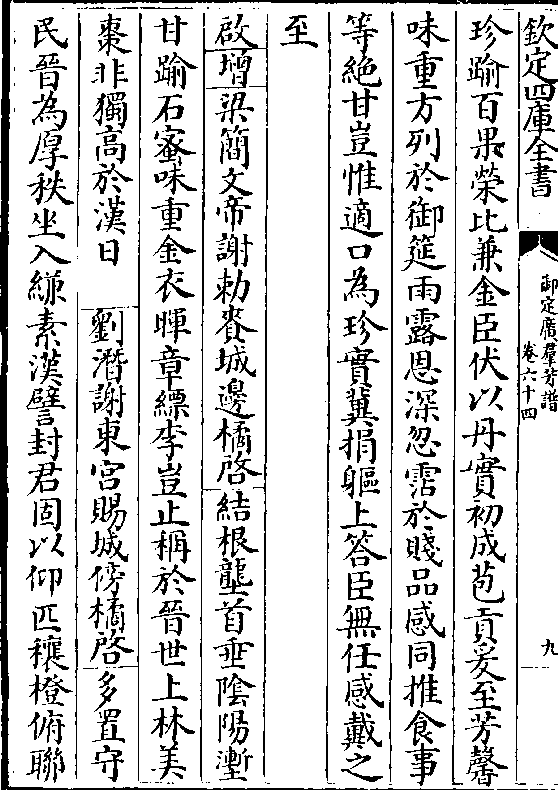 欽定四庫全書
御定廣羣芳譜
卷六十四
九
珍踰百果榮比兼金臣伏以丹實初成苞貢爰至芳馨
味重方列於御筵雨露恩深忽霑於賤品感同推食事
等絶甘豈惟適口為珍實冀捐軀上答臣無任感戴之
至
啟增梁簡文帝謝勅賚城邊橘啓結根龍首垂陰陽塹
甘踰石蜜味重金衣暉章縹李豈止稱於晉世上林美
棗非獨高於漢日 劉潛謝東宮賜城傍橘啓多置守
民晉為厚秩坐入縑素漢譬封君固以仰匹穰橙俯聯